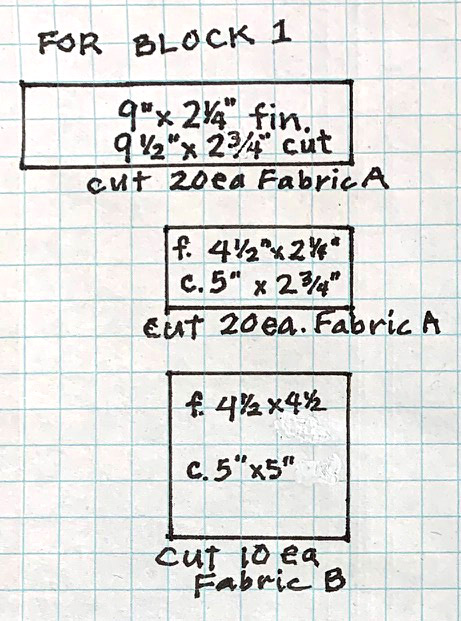 FOR BLOCK 1
9"x 2¼" fin.
9 ½"x 2¾" cut
cut 20ea Fabric A
f. 4½"x2¼"
c. 5" x 2¾"
cut 20ea. Fabric A
f. 4½x4½
c. 5"x5"
cut 10 ea
Fabric B